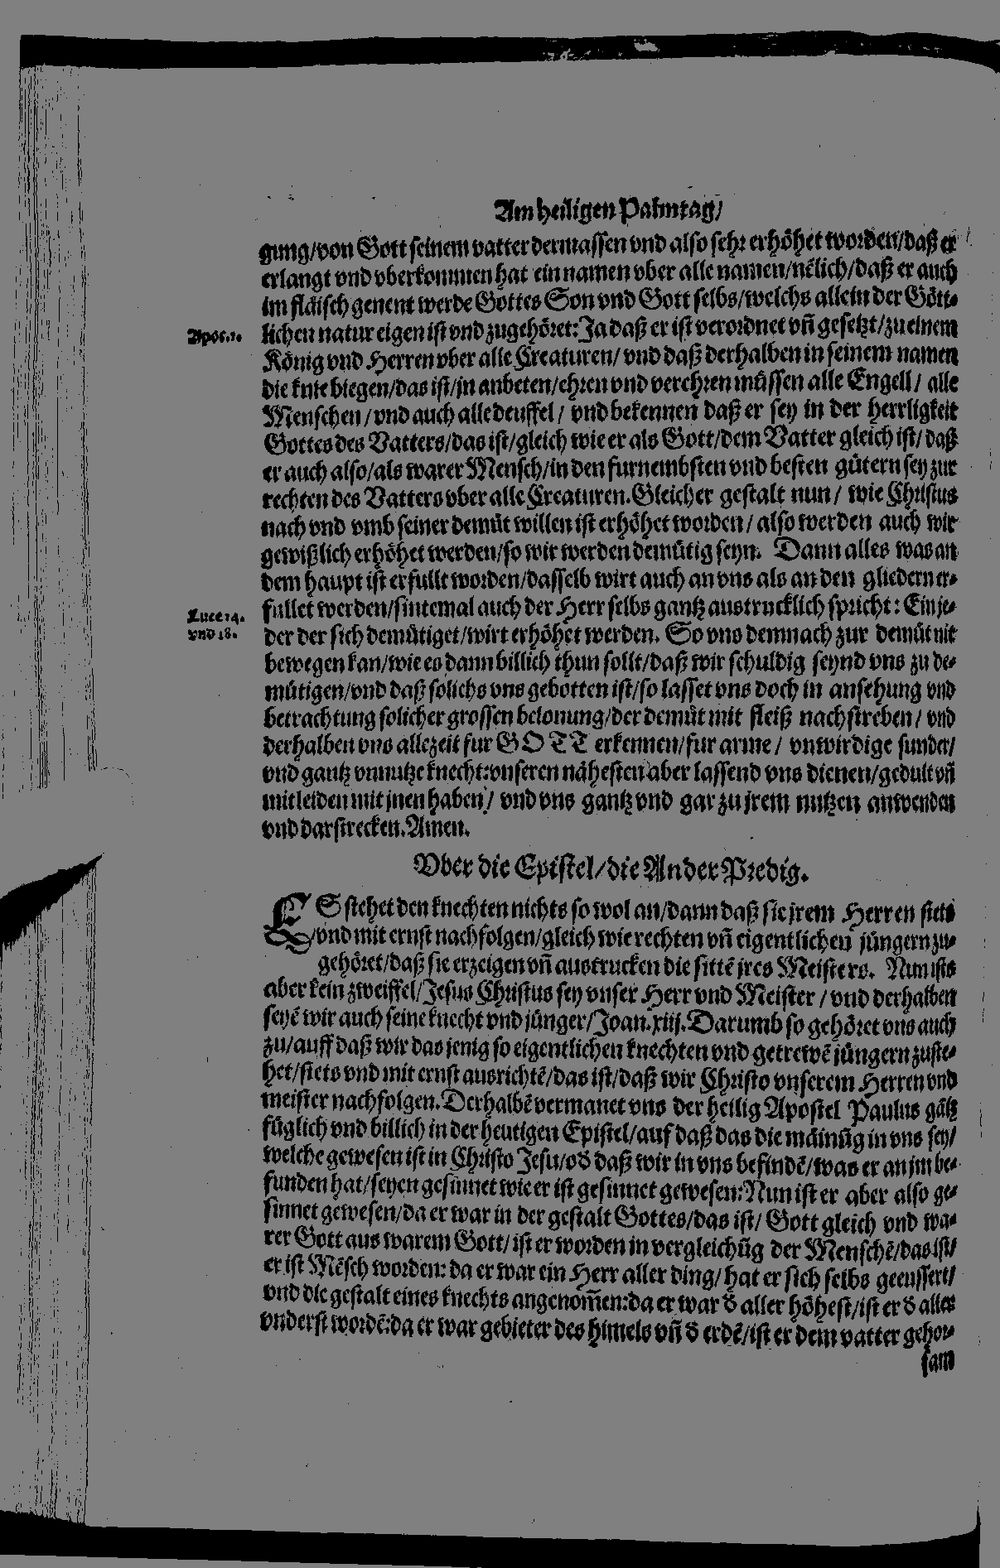 Am heiligen Palmtag/
gung/von Gott seinem vatter dermassen vnd also sehr erhöhet worden/daß er
erlangt vnd vberkommen hat ein namen vber alle namen/nẽlich/daß er auch
im fläisch genent werde Gottes Son vnd Gott selbs/welchs allein der Gött-
Apoc.1.
lichen natur eigen ist vnd zugehöret: Ja daß er ist verordnet vñ gesetzt/zu einem
König vnd Herren vber alle Creaturen/ vnd daß derhalben in seinem namen
die knie biegen/das ist/jn anbeten/ehren vnd verehren müssen alle Engell/ alle
Menschen/vnd auch alle deuffel/ vnd bekennen daß er sey in der herrligkeit
Gottes des Vatters/das ist/gleich wie er als Gott/dem Vatter gleich ist/daß
er auch also/als warer Mensch/in den furnembsten vnd besten gütern sey zur
rechten des Vatters vber alle Creaturen. Gleicher gestalt nun/ wie Christus
nach vnd vmb seiner demüt willen ist erhöhet worden/ also werden auch wir
gewißlich erhöhet werden/so wir werden demütig seyn. Dann alles was an
dem haupt ist erfullt worden/dasselb wirt auch an vns als an den gliedern er-
Luce 14.
vnd 18.
fullet werden/sintemal auch der Herr selbs gantz austrucklich spricht: Ein je-
der der sich demütiget/wirt erhöhet werden. So vns demnach zur demüt nit
bewegen kan/wie es dann billich thun sollt/daß wir schuldig seynd vns zu de-
mütigen/vnd daß solichs vns gebotten ist/so lasset vns doch in ansehung vnd
betrachtung solicher grossen belonung/der demüt mit fleiß nachstreben/ vnd
derhalben vns allezeit fur GOTT erkennen/fur arme/ vnwirdige sunder/
vnd gantz vnnutze knecht:vnseren nähesten aber lassend vns dienen/gedult vñ
mitleiden mit jnen haben/ vnd vns gantz vnd gar zu jrem nutzen anwenden
vnd darstrecken. Amen.
Vber die Epistel/die Ander Predig.
ES stehet den knechten nichts so wol an/dann daß sie jrem Herren stets
/vnd mit ernst nachfolgen/gleich wie rechten vñ eigentlichen jüngern zu-
gehöret/daß sie erzeigen vñ austrucken die sittẽ jres Meisters. Nun ists
aber kein zweiffel/Jesus Christus sey vnser Herr vnd Meister/ vnd derhalben
seyẽ wir auch seine knecht vnd jünger/Joan.xiij. Darumb so gehöret vns auch
zu/auff daß wir das jenig so eigentlichen knechten vnd getrewẽ jüngern zuste-
het/stets vnd mit ernst ausrichtẽ/das ist/daß wir Christo vnserem Herren vnd
meister nachfolgen. Derhalbẽ vermanet vns der heilig Apostel Paulus gãtz
füglich vnd billich in der heutigen Epistel/auf daß das die mäinũg in vns sey/
welche gewesen ist in Christo Jesu/oð daß wir in vns befindẽ/was er an jm be-
funden hat/seyen gesinnet wie er ist gesinnet gewesen: Nun ist er aber also ge-
sinnet gewesen/da er war in der gestalt Gottes/das ist/ Gott gleich vnd wa-
rer Gott aus warem Gott/ist er worden in vergleichũg der Menschẽ/das ist/
er ist Mẽsch worden: da er war ein Herr aller ding/ hat er sich selbs geeussert/
vnd die gestalt eines knechts angenom̃en:da er war ð aller höhest/ist er ð alles
vnderst wordẽ:da er war gebieter des himels vñ ð erdẽ/ist er dem vatter gehor-
sam